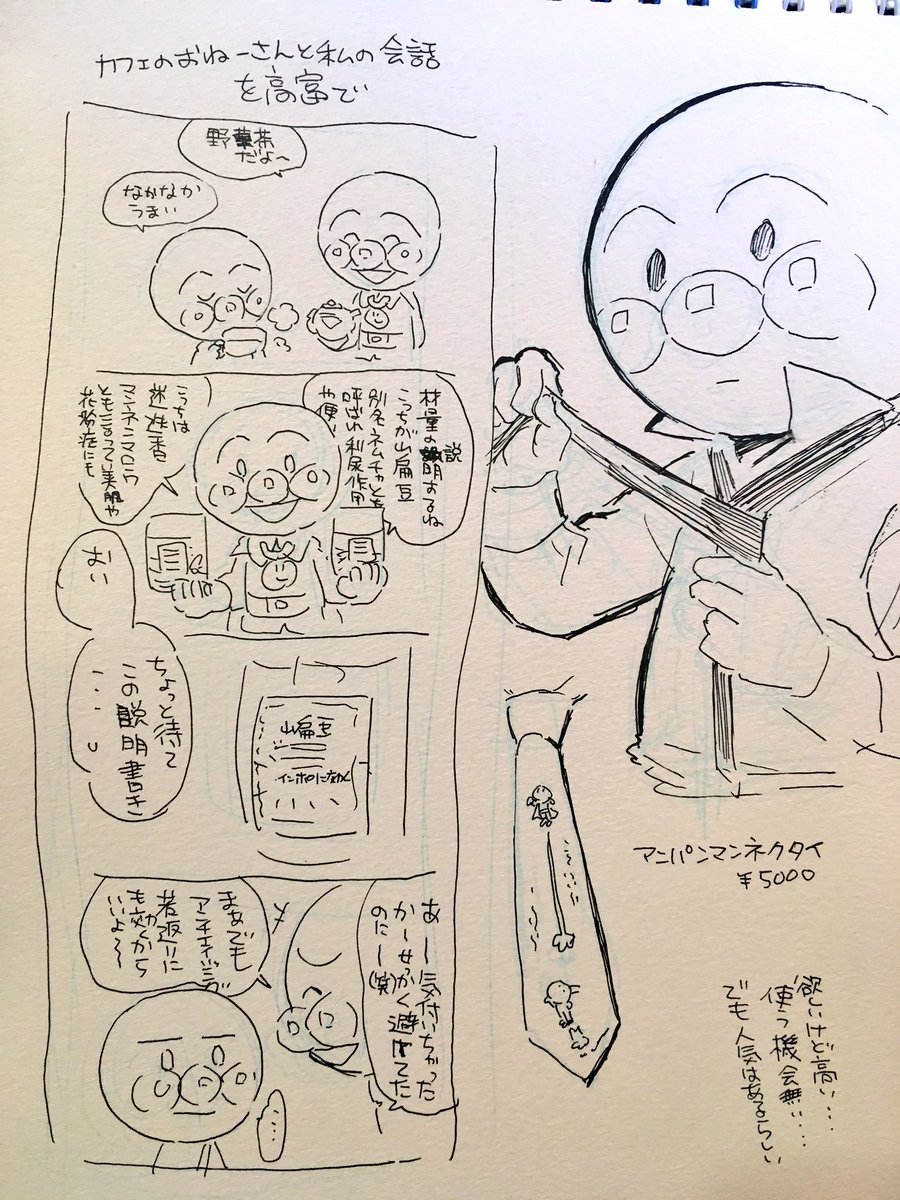 カフェのおねーさんと私の会話
を高富で
野草茶
だよ〜
なかなか
うまい
材量の説明するね
こっちが山扁豆
別名ネムチャとも
呼ばれ利尿作用
や便
こっちは
迷迭香
マンネンロウ
とも言って美肌や
花粉症にも
おい
ちょっと待て
この説明書き
・・・
山扁豆
インポに効く
あー気付いちゃった
かーせっかく避けてた
のにー(笑)
まあでも
アンチエイジング
若返りに
も効くから
いいよ〜
・・・
アンパンマンネクタイ
¥5000
欲しいけど高い…
使う機会無い…
でも人気はあるらしい